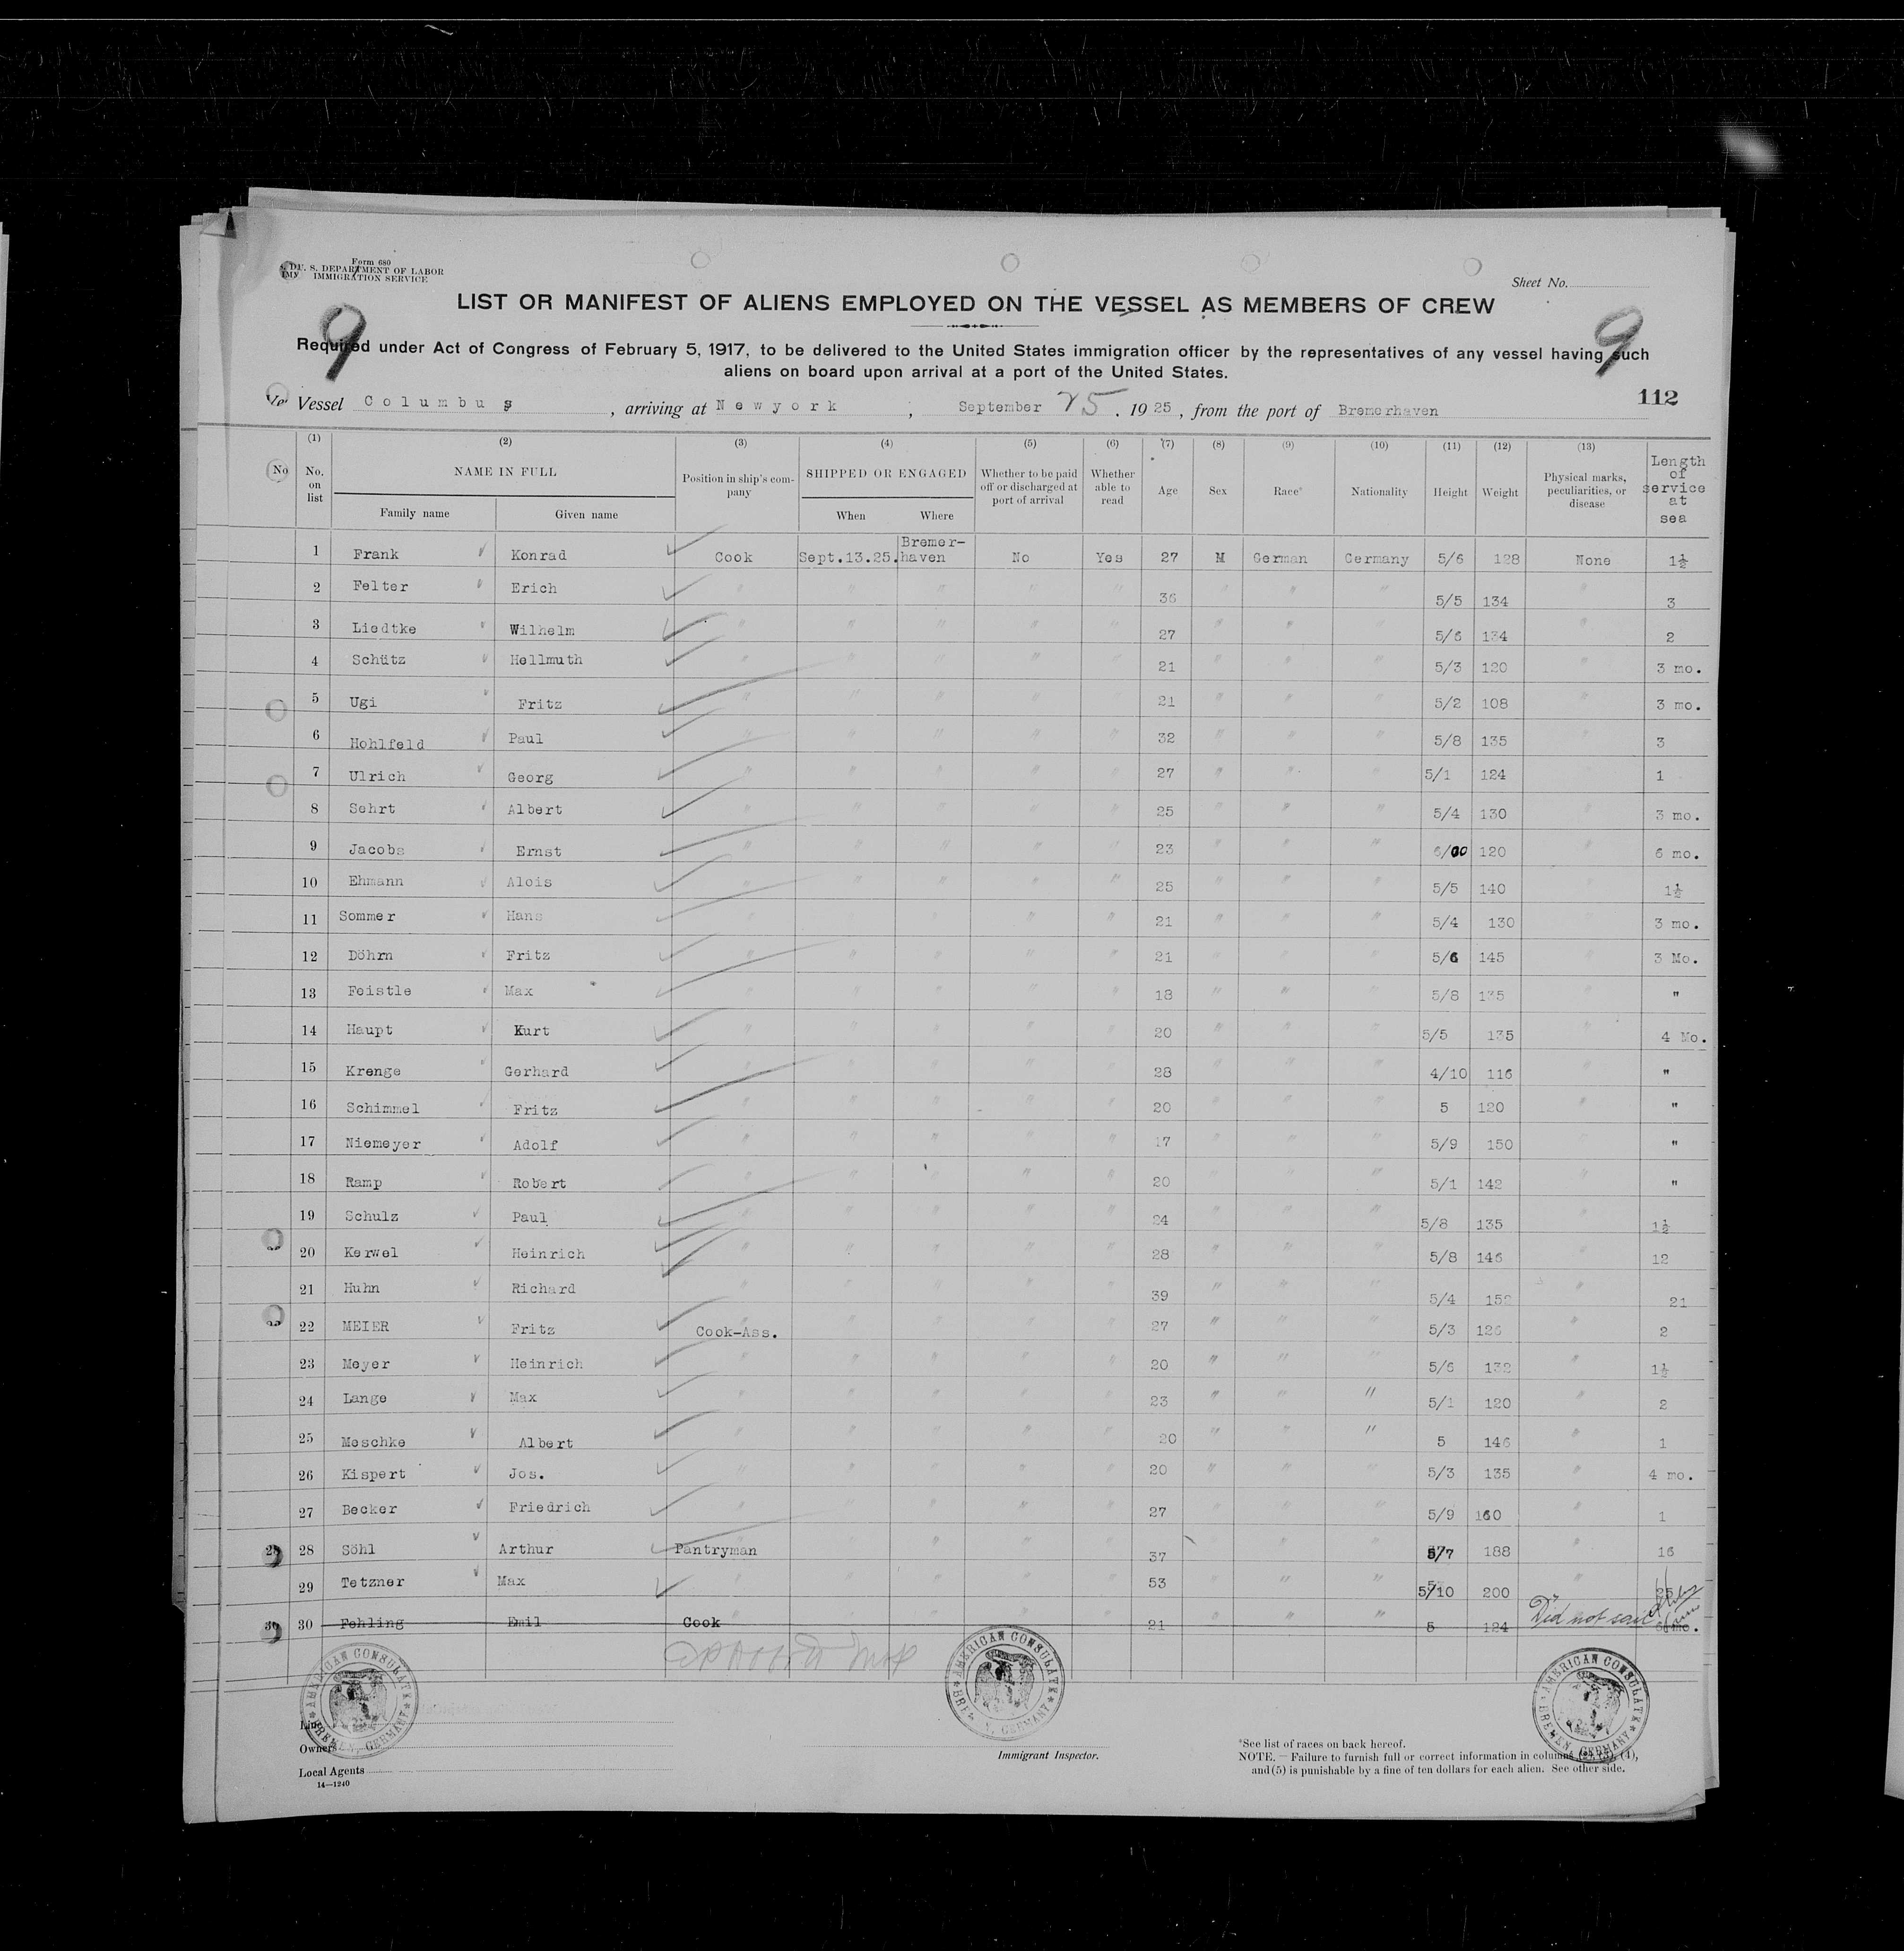 Form 680
U. S. DEPARTMENT OF LABOR
IMMIGRATION SERVICE
Sheet No.
LIST OR MANIFEST OF ALIENS EMPLOYED ON THE VESSEL AS MEMBERS OF CREW
9 9
Required under Act of Congress of February 5, 1917, to be delivered to the United States immigration officer by the representatives of any vessel having such
aliens on board upon arrival at a port of the United States.
112
Vessel Columbus, arriving at Newyork, September 25, 1925, from the port of Bremerhaven
(1) (2) (3) (4) (5) (6) (7) (8) (9) (10) (11) (12) (13)
No. on list NAME IN FULL Family name Given name Position in ship's company SHIPPED OR ENGAGED When Where Whether to be paid off or discharged at port of arrival Whether able to read Age Sex Race* Nationality Height Weight Physical marks, peculiarities, or disease Length of service at sea
1 Frank Konrad Cook Sept.13.25. Bremerhaven No Yes 27 M German Germany 5/6 128 None 1½
2 Felter Erich " " " " " 36 " " " 5/5 134 " 3
3 Liedtke Wilhelm " " " " " 27 " " " 5/6 134 " 2
4 Schütz Hellmuth " " " " " 21 " " " 5/3 120 " 3 mo.
5 Ugi Fritz " " " " " 21 " " " 5/2 108 " 3 mo.
6 Hohlfeld Paul " " " " " 32 " " " 5/8 135 " 3
7 Ulrich Georg " " " " " 27 " " " 5/1 124 " 1
8 Sehrt Albert " " " " " 25 " " " 5/4 130 " 3 mo.
9 Jacobs Ernst " " " " " 23 " " " 120 " 6 mo.
10 Ehmann Alois " " " " " 25 " " " 5/5 140 " 1½
11 Sommer Hans " " " " " 21 " " " 5/4 130 " 3 mo.
12 Döhrn Fritz " " " " " 21 " " " 5/6 145 " 3 Mo.
13 Feistle Max " " " " " 18 " " " 5/8 135 " "
14 Haupt Kurt " " " " " 20 " " " 5/5 135 " 4 Mo.
15 Krenge Gerhard " " " " " 28 " " " 4/10 116 " "
16 Schimmel Fritz " " " " " 20 " " " 5 120 " "
17 Niemeyer Adolf " " " " " 17 " " " 5/9 150 " "
18 Ramp Robert " " " " " 20 " " " 5/1 142 " "
19 Schulz Paul " " " " " 24 " " " 5/8 135 " 1½
20 Kerwel Heinrich " " " " " 28 " " " 5/8 146 " 12
21 Huhn Richard " " " " " 39 " " " 5/4 152 " 21
22 MEIER Fritz Cook-Ass. " " " " 27 " " " 5/3 126 " 2
23 Meyer Heinrich " " " " " 20 " " " 5/6 132 " 1½
24 Lange Max " " " " " 23 " " " 5/1 120 " 2
25 Meschke Albert " " " " " 20 " " " 5 146 " 1
26 Kispert Jos. " " " " " 20 " " " 5/3 135 " 4 mo.
27 Becker Friedrich " " " " " 27 " " " 5/9 160 " 1
28 Söhl Arthur Pantryman " " " " 37 " " " 5/7 188 " 16
29 Tetzner Max " " " " " 53 " " " 5/10 200 " 25
30 Fehling Emil Cook " " " " 21 " " " 5 124 Did not sail
AMERICAN CONSULATE
BREMEN, GERMANY
AMERICAN CONSULATE
BREMEN, GERMANY
AMERICAN CONSULATE
BREMEN, GERMANY
Line
Owners
Local Agents
14—1240
Immigrant Inspector.
*See list of races on back hereof.
NOTE.—Failure to furnish full or correct information in columns (4),
and (5) is punishable by a fine of ten dollars for each alien. See other side.